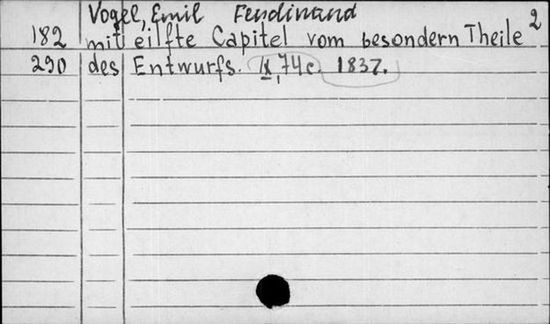 Vogel, Emil Ferdinand 2
182 mit eilfte Capitel vom besondern Theile
290 des Entwurfs. IX, 74 c. 1837.